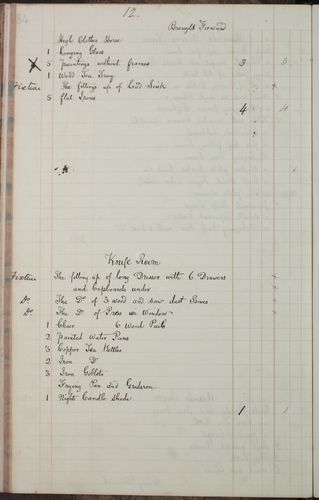 12.
Brought Forward
High Clothes Horse
1 Hanging Glass
5 Paintings without frames 3
1 Wood Tea Tray
Fixture The fittings up of Lead Sink
5 flat Irons
4 4
Knife Room
Fixture The fitting up of long Dresser with 6 Drawers
and Cupboards under
Do The Do of 3 wood and saw dust Bins
Do The Do of Press in Window
1 Chair 6 Wood Pails
2 Painted Water Pans
3 Copper Tea Kettles
2 Iron Do
3 Iron Goblets
Frying Pan and Gridiron
1 Night Candle Shade
1 1